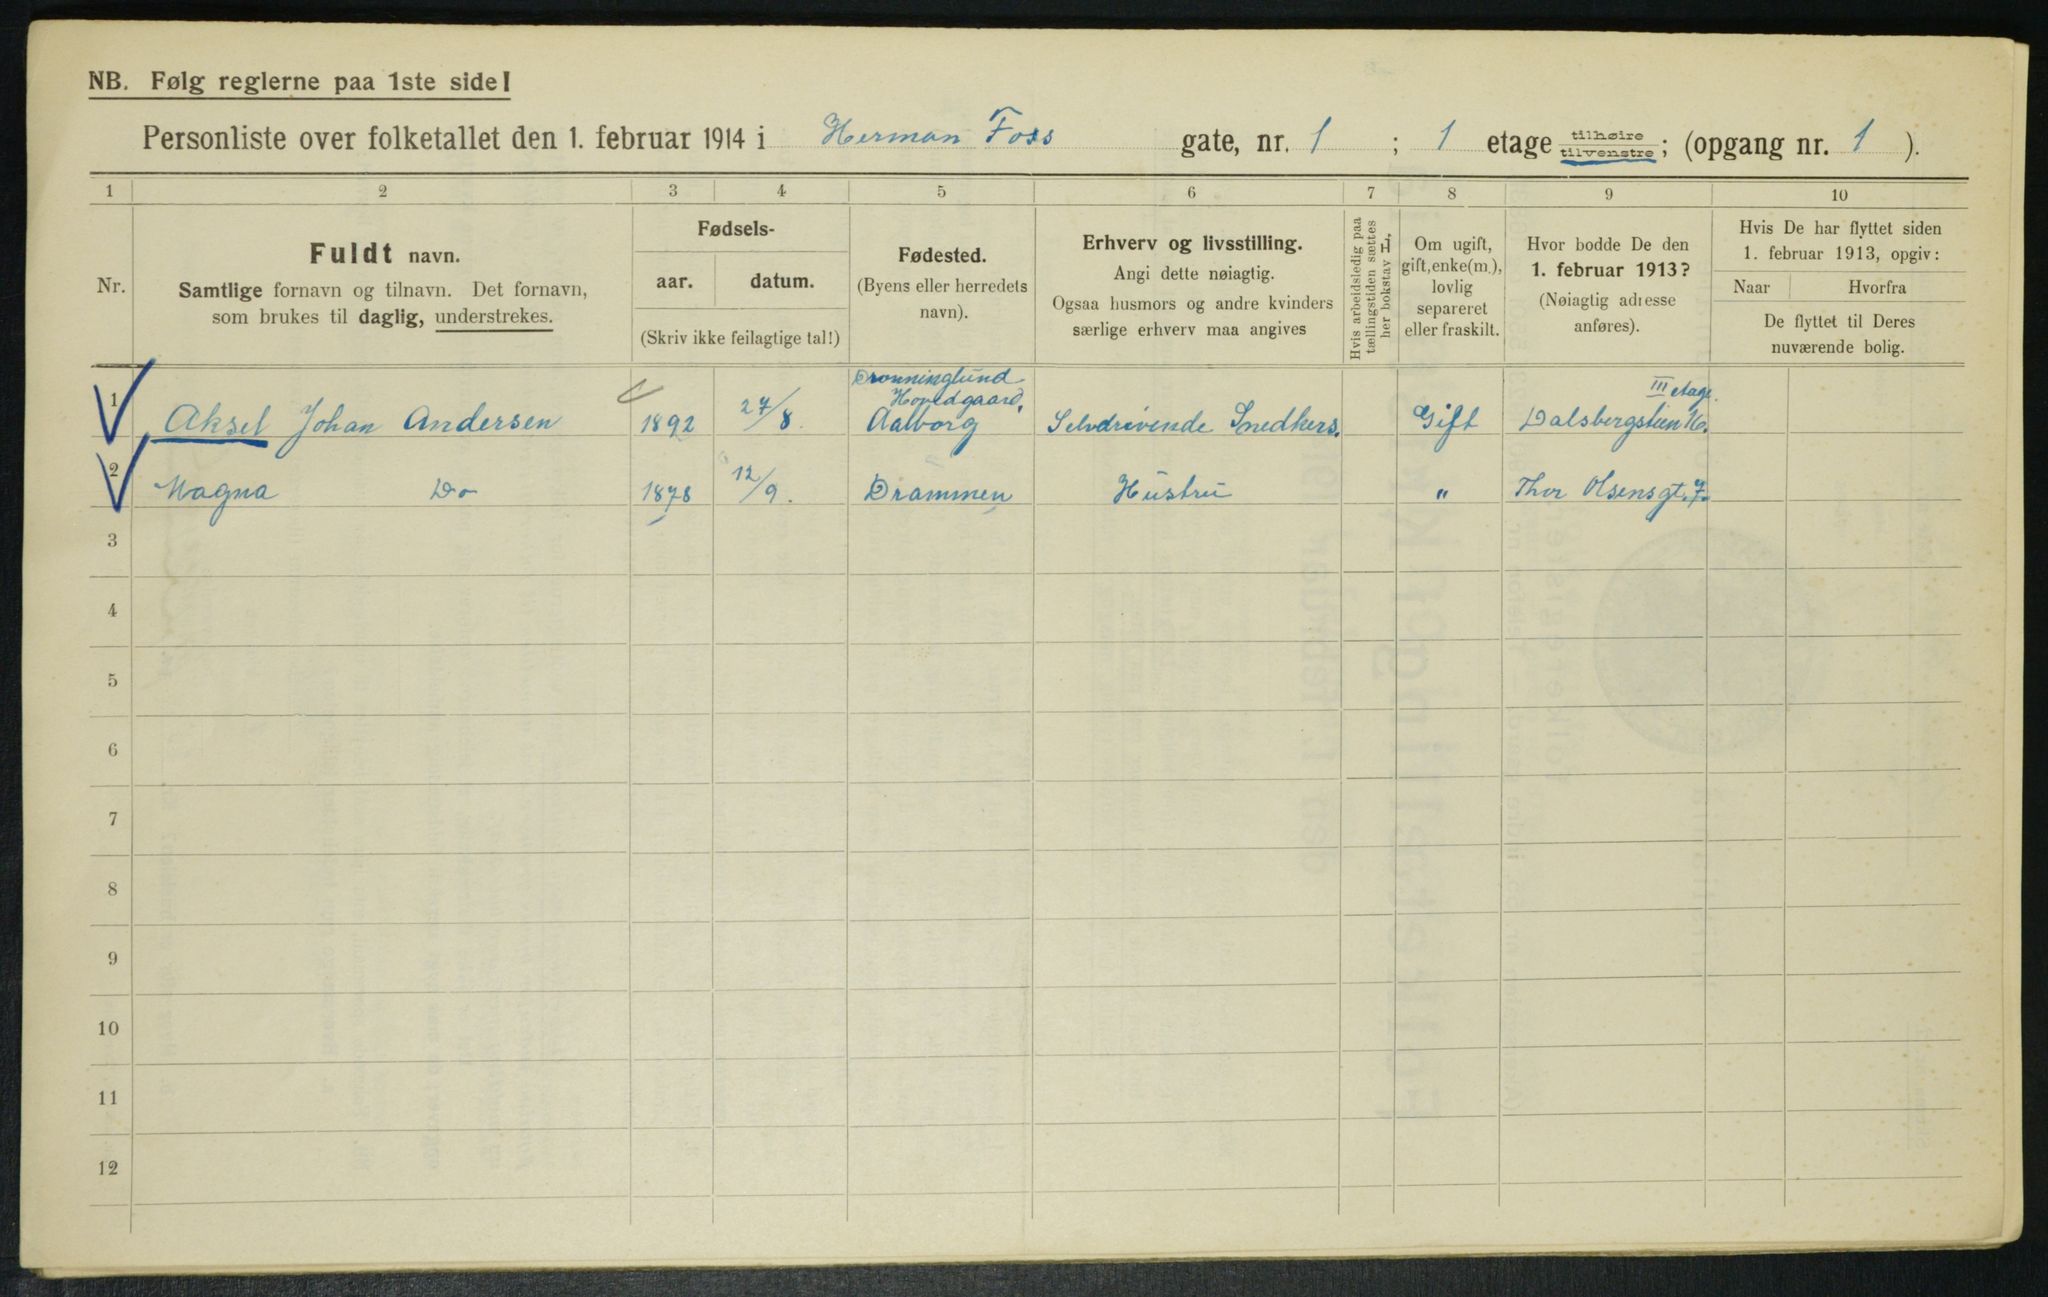 NB. Følg reglerne paa 1ste side!
Personliste over folketallet den 1. februar 1914 i Herman Foss gate, nr. 1 ; 1 etage tilhøire tilvenstre ; (opgang nr. 1 ).
1 2 3 4 5 6 7 8 9 10
Nr.
Fuldt navn.
Samtlige fornavn og tilnavn. Det fornavn,
som brukes til daglig, understrekes.
Fødsels-
aar. datum.
(Skriv ikke feilagtige tal!)
Fødested.
(Byens eller herredets
navn).
Erhverv og livsstilling.
Angi dette nøiagtig.
Ogsaa husmors og andre kvinders
særlige erhverv maa angives
Hvis arbeidsledig paa
tællingstiden sættes
her bokstav L.
Om ugift,
gift, enke(m.),
lovlig
separeret
eller fraskilt.
Hvor bodde De den
1. februar 1913?
(Nøiagtig adresse
anføres).
Hvis De har flyttet siden
1. februar 1913, opgiv:
Naar Hvorfra
De flyttet til Deres
nuværende bolig.
Dronninglund
Hovedgaard, III etage.
1 Aksel Johan Andersen 1892 27/8. Aalborg Selvdrivende Snedkers. Gift Dalsbergstien 16.
2 Magna Do 1878 12/9. Drammen Hustru " Thor Olsensgt. 7.
3
4
5
6
7
8
9
10
11
12